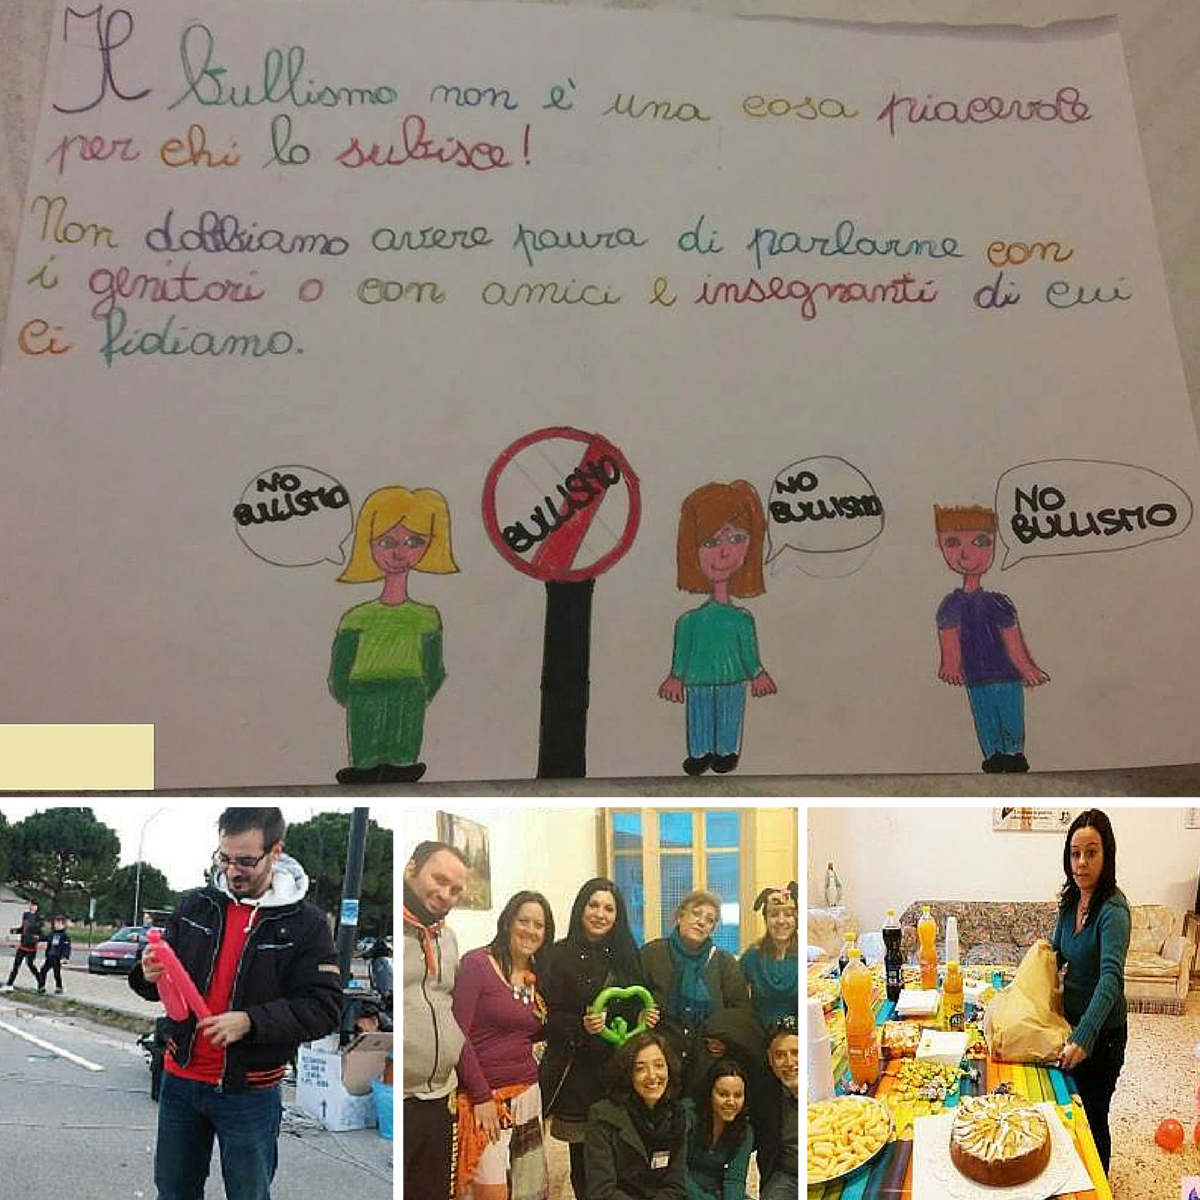 Il bullismo non è una cosa piacevole
per chi lo subisce!
Non dobbiamo avere paura di parlarne con
i genitori o con amici e insegnanti di cui
ci fidiamo.
NO
BULLISMO
BULLISMO
NO
BULLISMO
NO
BULLISMO